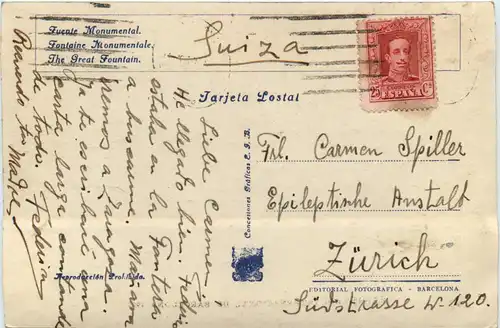 Fuente Monumental.
Fontaine Monumentale.
The Great Fountain.
Suiza
25 Cs
ESPAÑA
Tarjeta Postal
Liebe Carmen,
He llegado bien. Federico
estaba en la Frontera
a buscarme. Mañana
iremos a Zaragoza.
Ya te escribiré una
carta larga contando
de todo. Federico
Recuerdo tu Madre
Concesiones Gráficas E.I.D.
Frl. Carmen Spiller
Epileptische Anstalt
Zürich
EDITORIAL FOTOGRAFICA - BARCELONA
Südstrasse Nr 120.
Reproducción Prohibida.